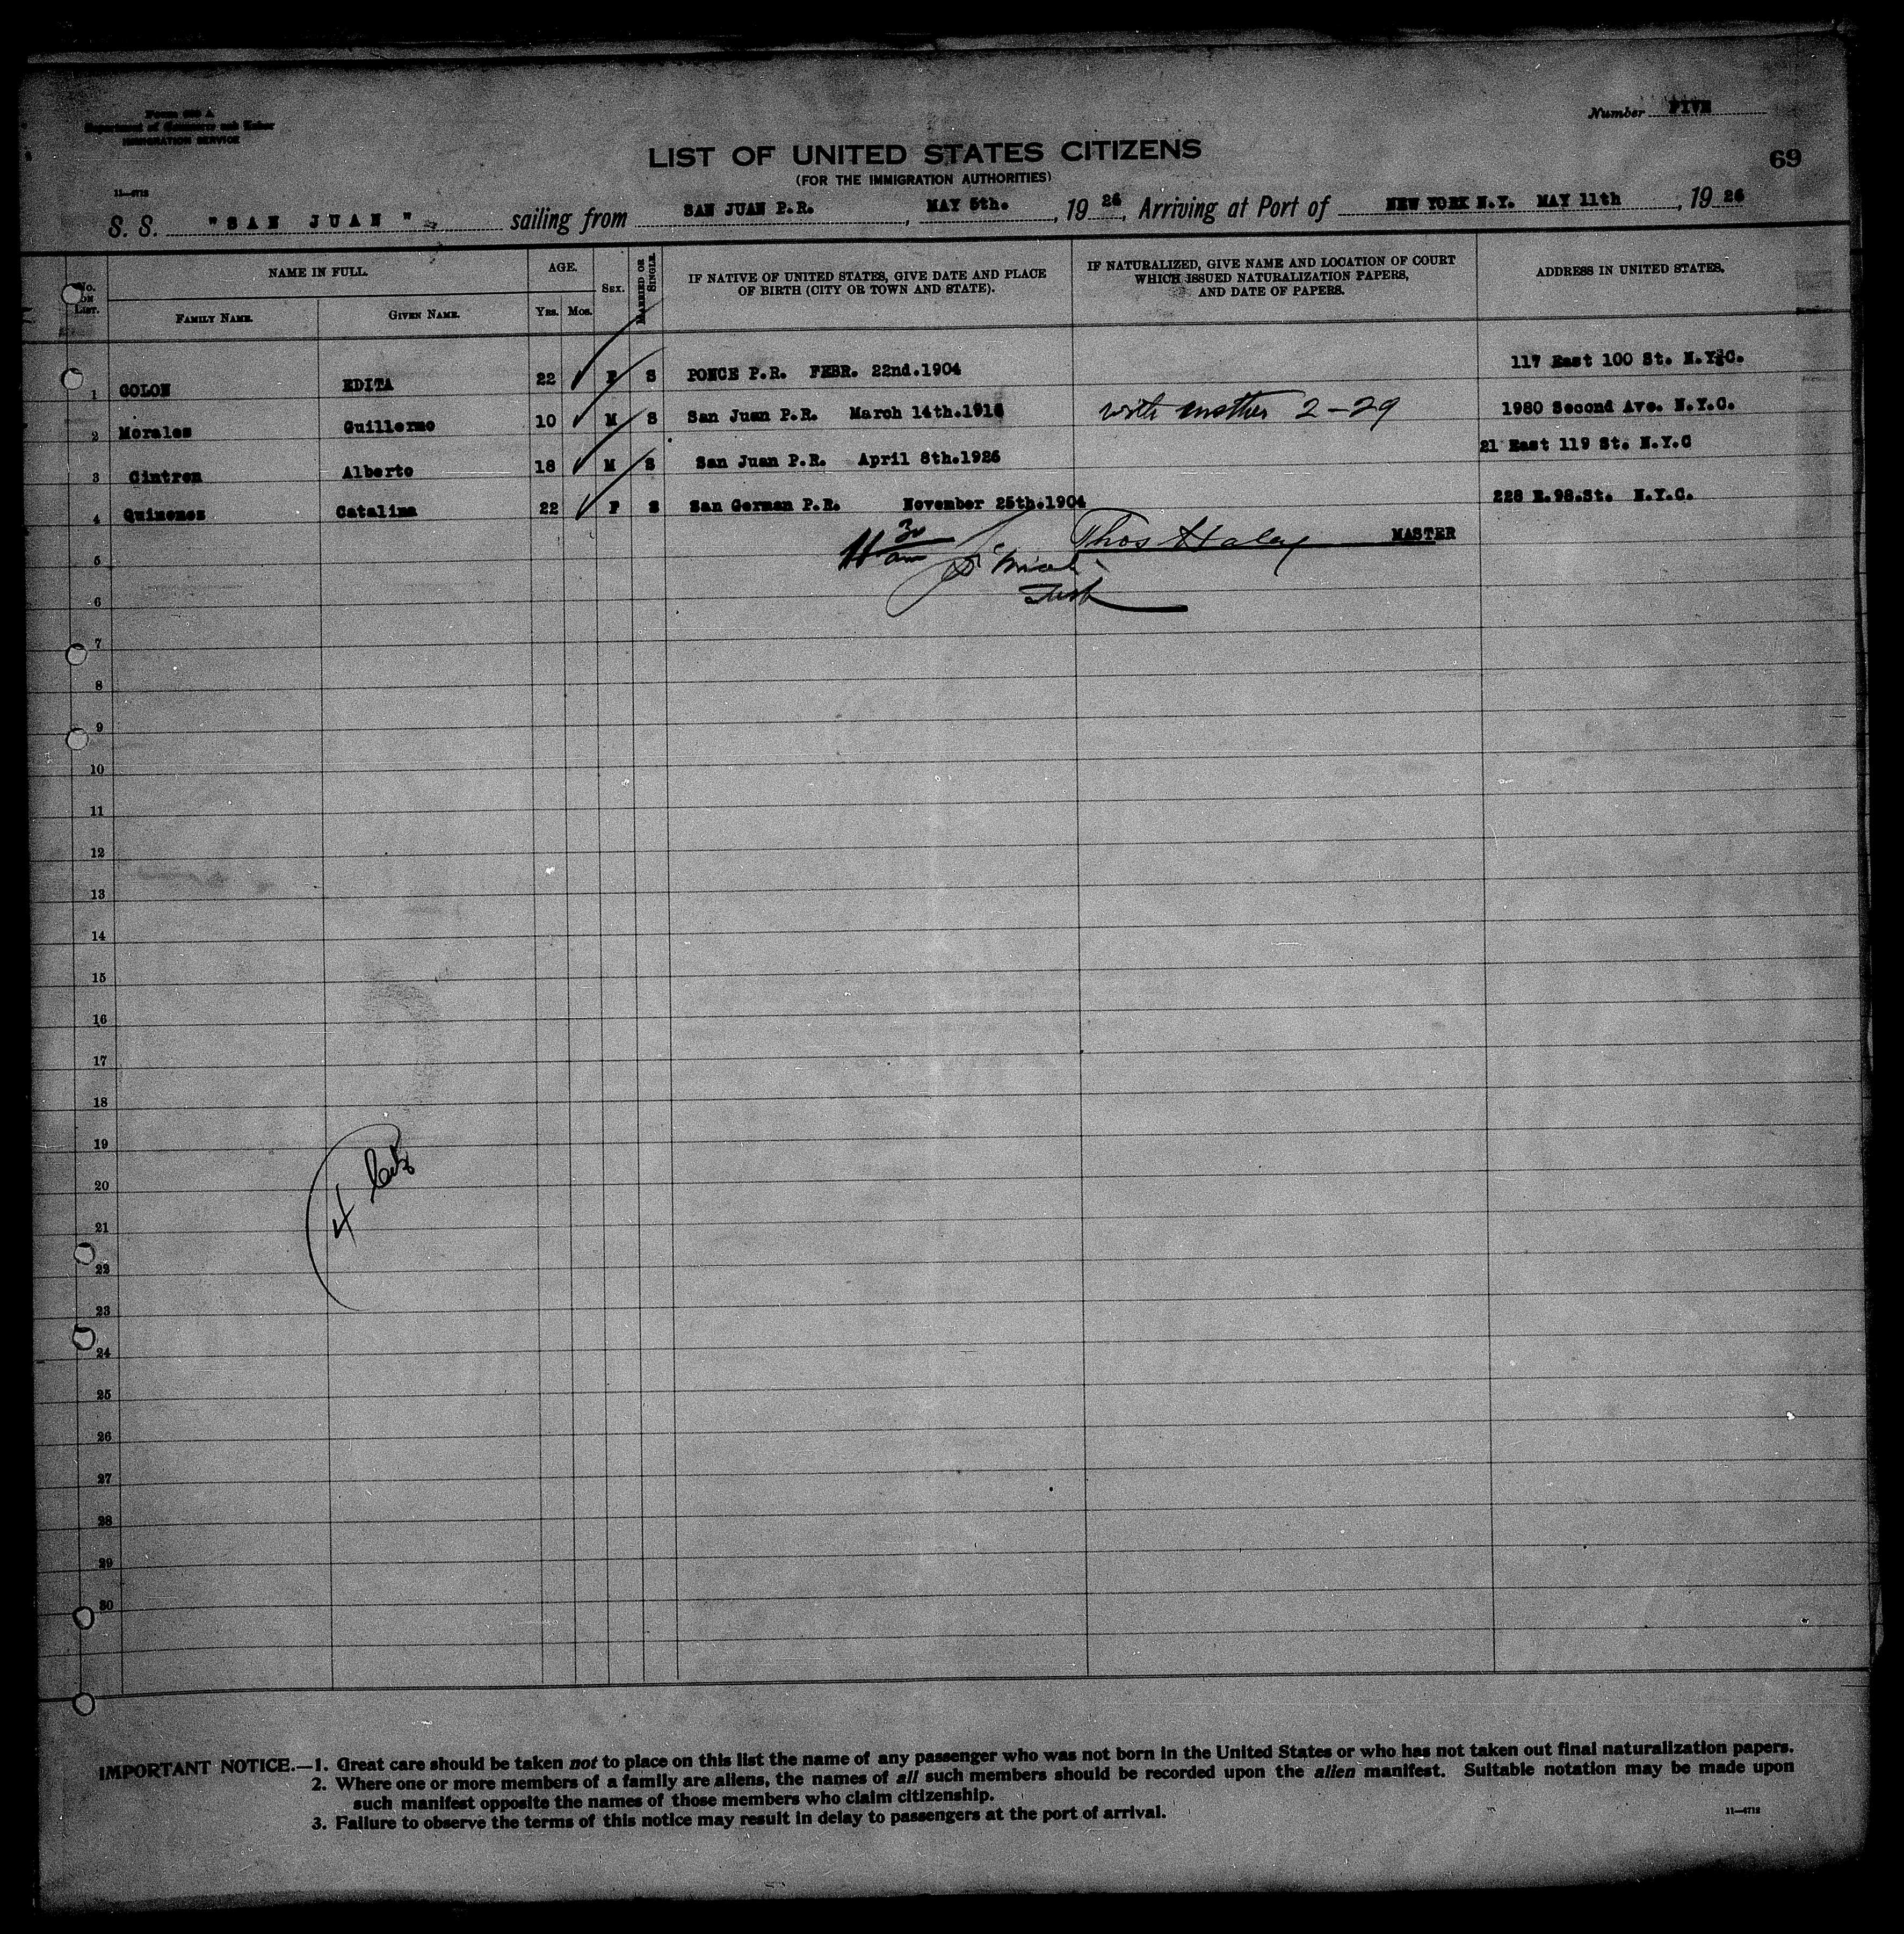 Form 630 A
Department of Commerce and Labor
IMMIGRATION SERVICE
Number FIVE
LIST OF UNITED STATES CITIZENS
69
(FOR THE IMMIGRATION AUTHORITIES)
11—4712
S. S. "SAN JUAN" sailing from SAN JUAN P.R., MAY 5th., 1926, Arriving at Port of NEW YORK N.Y. MAY 11th, 1926
No. ON LIST. NAME IN FULL. AGE. SEX. MARRIED OR SINGLE. IF NATIVE OF UNITED STATES, GIVE DATE AND PLACE OF BIRTH (CITY OR TOWN AND STATE). IF NATURALIZED, GIVE NAME AND LOCATION OF COURT WHICH ISSUED NATURALIZATION PAPERS, AND DATE OF PAPERS. ADDRESS IN UNITED STATES.
FAMILY NAME. GIVEN NAME. YRS. MOS.
1 COLON EDITA 22 F S PONCE P.R. FEBR. 22nd.1904 117 East 100 St. N.Y.C.
2 Morales Guillermo 10 M S San Juan P.R. March 14th.1916 with mother 2-29 1980 Second Ave. N.Y.C.
3 Cintron Alberto 18 M S San Juan P.R. April 8th.1926 21 East 119 St. N.Y.C
4 Quinones Catalina 22 F S San German P.R. November 25th.1904 228 E.98.St. N.Y.C.
11 30 am Thos Haley MASTER
5
6
7
8
9
10
11
12
13
14
15
16
17
18
19
20
4
21
22
23
24
25
26
27
28
29
30
IMPORTANT NOTICE.—1. Great care should be taken not to place on this list the name of any passenger who was not born in the United States or who has not taken out final naturalization papers.
2. Where one or more members of a family are aliens, the names of all such members should be recorded upon the alien manifest. Suitable notation may be made upon
such manifest opposite the names of those members who claim citizenship.
3. Failure to observe the terms of this notice may result in delay to passengers at the port of arrival.
11—4712